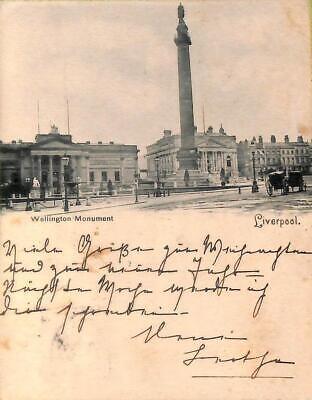 Wellington Monument
Liverpool.
Viele Grüße zum Weihnachten
und zum neuen Jahr
Nächste Woche werde ich
dir schreiben.